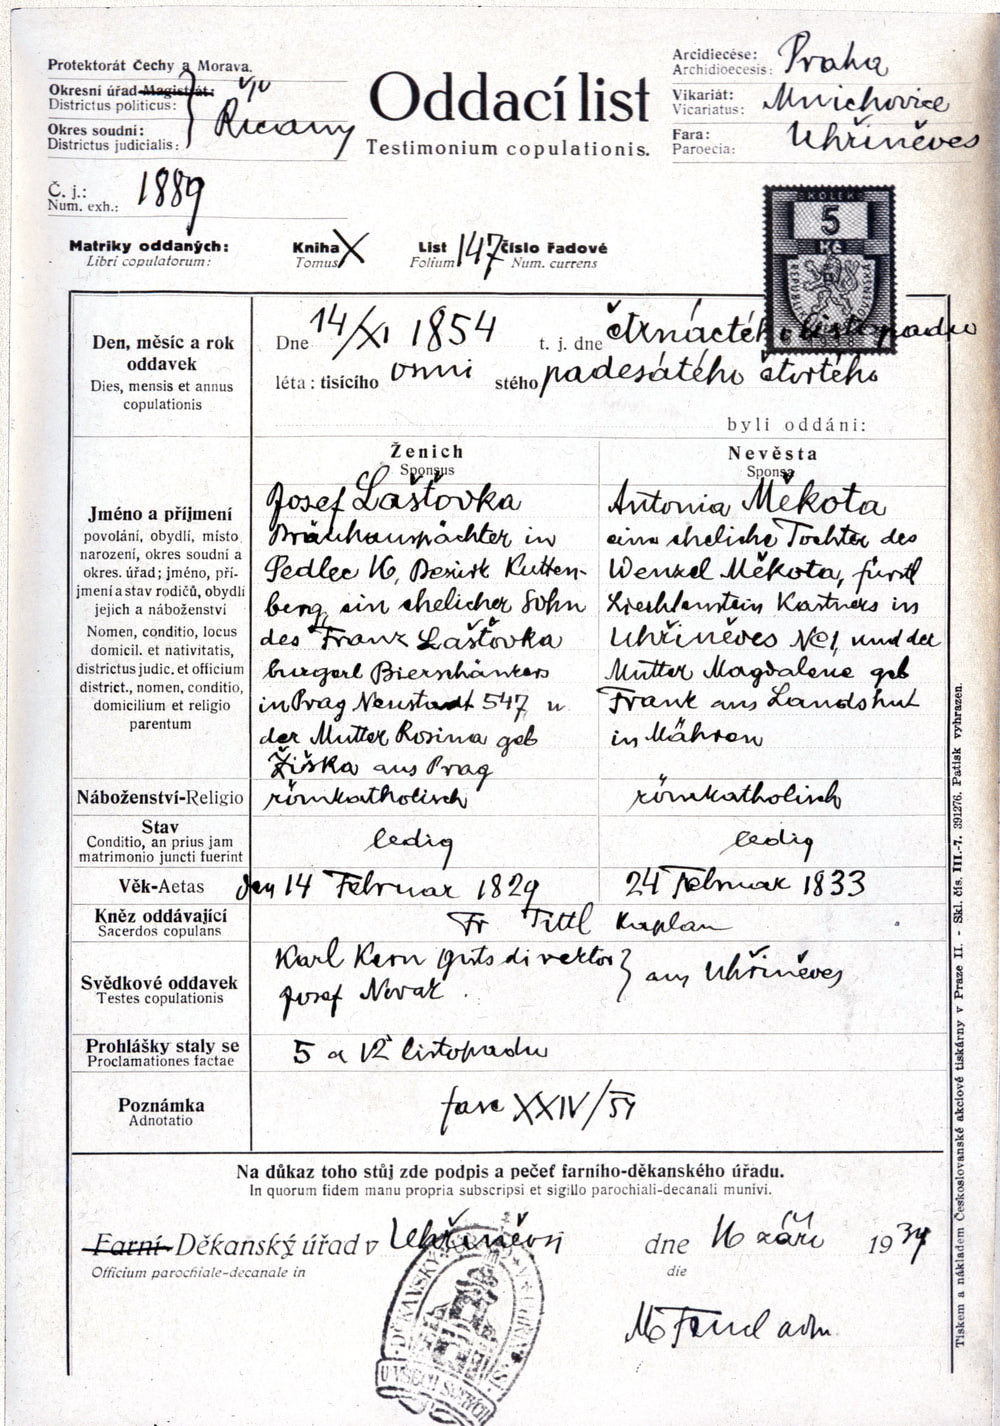 Protektorát Čechy a Morava.
Okresní úřad-Magistrát:
Districtus politicus:
Okres soudní:
Districtus judicialis:
Říčany
Oddací list
Testimonium copulationis.
Arcidiecése: Praha
Archidioecesis:
Vikariát: Mnichovice
Vicariatus:
Fara: Uhříněves
Paroecia:
Č. j.: 1889
Num. exh.:
KOLEK
5
Kč
Matriky oddaných: Kniha X List 147 Číslo řadové
Libri copulatorum: Tomus Folium Num. currens
Den, měsíc a rok
oddavek
Dies, mensis et annus
copulationis
Dne 14/XI 1854 t. j. dne čtrnáctého listopadu
léta: tisícího osmi stého padesátého čtvrtého
byli oddáni:
Ženich Nevěsta
Sponsus Sponsa
Jméno a příjmení
povolání, obydlí, místo
narození, okres soudní a
okres. úřad; jméno, pří-
jmení a stav rodičů, obydlí
jejich a náboženství
Nomen, conditio, locus
domicil. et nativitatis,
districtus judic. et officium
district., nomen, conditio,
domicilium et religio
parentum
Josef Lášťovka
Bräuhauspächter in
Sedlec 16, Bezirk Kutten-
berg, ein ehelicher Sohn
des Franz Lášťovka
burgerl Bierschänkers
in Prag Neustadt 547 u
der Mutter Rosina geb
Žiška aus Prag
Antonia Měkota
eine eheliche Tochter des
Wenzel Měkota, fürstl
Liechtenstein Kastners in
Uhříněves No 1, und der
Mutter Magdalene geb
Frank aus Landshut
in Mähren
Náboženství-Religio römkatholisch römkatholisch
Stav
Conditio, an prius jam
matrimonio juncti fuerint
ledig ledig
Věk-Aetas den 14 Februar 1829 24 Februar 1833
Kněz oddávající
Sacerdos copulans
Fr Tittl Kaplan
Svědkové oddavek
Testes copulationis
Karl Kern Gutsdirektor
Josef Novak
} aus Uhříněves
Prohlášky staly se
Proclamationes factae
5 a 12 listopadu
Poznámka
Adnotatio
fasc XXIV/54
Na důkaz toho stůj zde podpis a pečeť farního-děkanského úřadu.
In quorum fidem manu propria subscripsi et sigillo parochiali-decanali munivi.
Farní-Děkanský úřad v Uhříněvsi dne 16 září 1939
Officium parochiale-decanale in die
DĚKANSKÝ
U VŠECH SVATÝCH
adm.
Tiskem a nákladem Československé akciové tiskárny v Praze II. - Skl. čís. III.-7. 391276. Patisk vyhrazen.